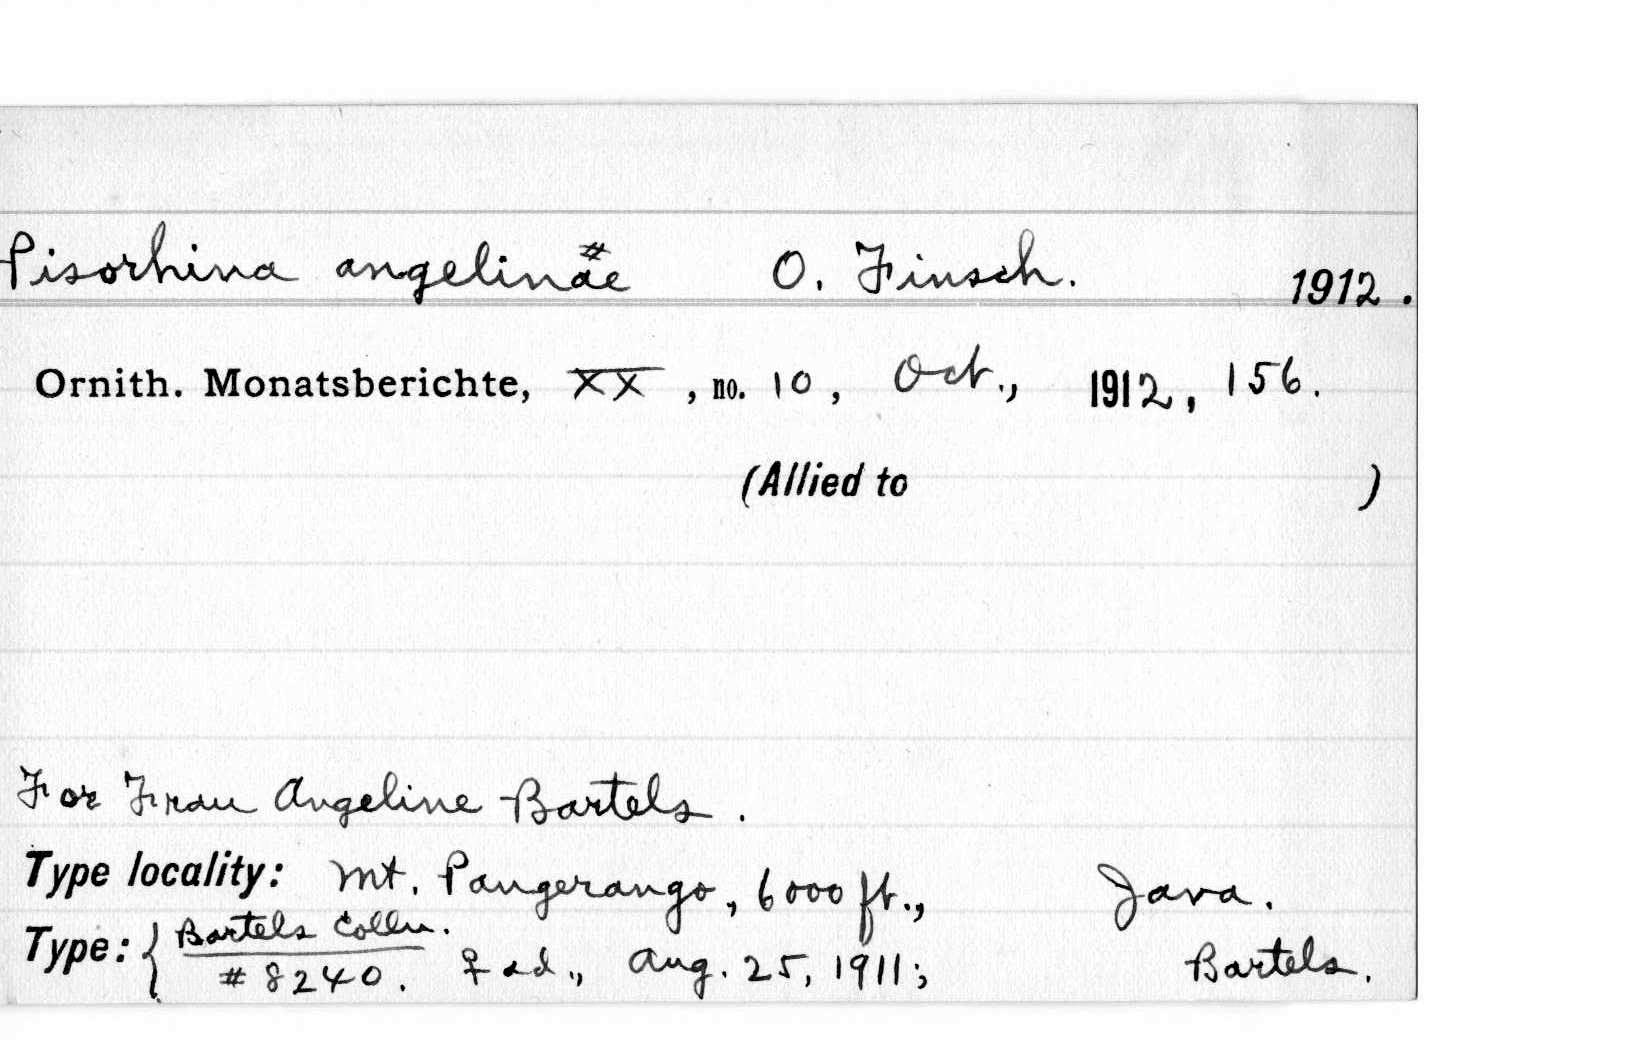 Pisorhina angelinæ O. Finsch. 1912.
#
Ornith. Monatsberichte, XX, no. 10, Oct., 1912, 156.
(Allied to )
For Frau Angeline Bartels.
Type locality: Mt. Pangerango, 6000 ft., Java.
Type: { Bartels Colln. # 8240. ♀ ad., Aug. 25, 1911; Bartels.